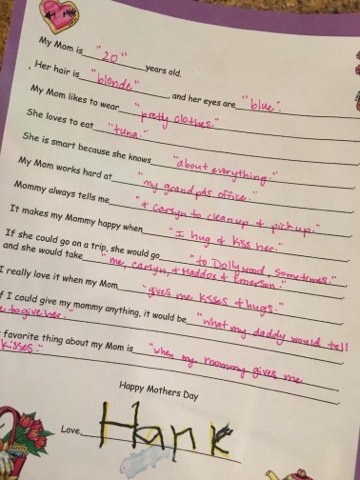 My Mom is "20" years old.
Her hair is "blonde" and her eyes are "blue".
My Mom likes to wear "pretty clothes."
She loves to eat "tuna."
She is smart because she knows "about everything."
My Mom works hard at "my grandpa's office."
Mommy always tells me "& Carsyn to clean up & pick up."
It makes my Mommy happy when "I hug & kiss her."
If she could go on a trip, she would go "to Dollywood, sometimes."
and she would take "me, carsyn, & Maddox & Emerson."
I really love it when my Mom "gives me kisses & hugs."
f I could give my mommy anything, it would be "what my daddy would tell
e to give her."
favorite thing about my Mom is "when my mommy gives me
kisses."
Happy Mothers Day
Love, Hank